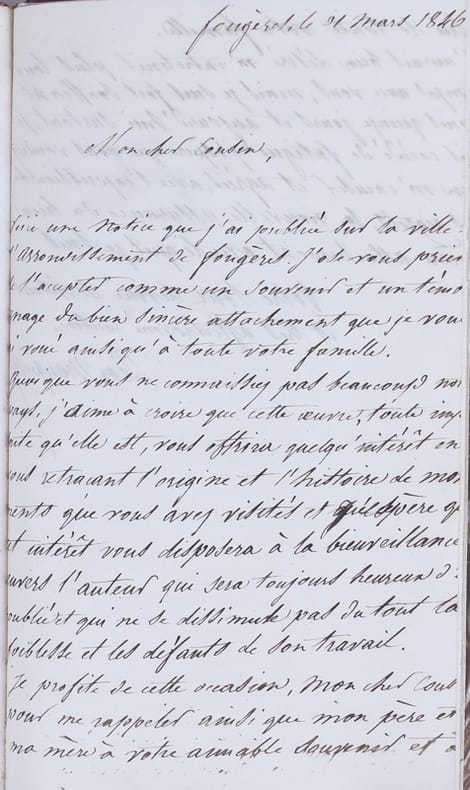 fougères, le 21 mars 1846
Mon cher Cousin,
une notice que j'ai publiée sur la ville
l'arrondissement de fougères. J'ose vous prier
de l'accepter comme un souvenir et un témoi
gnage du bien sincère attachement que je vou
ai voué ainsi qu'à toute votre famille.
Quoique vous ne connaissiez pas beaucoup no
pays, j'aime à croire que cette œuvre, toute imp
aite qu'elle est, vous offrira quelqu'intérêt en
vous retracant l'origine et l'histoire de mo
ments que vous avez visités et espère q
et intérêt vous disposera à la bienveillance
envers l'auteur qui sera toujours heureux d
oublié et qui ne se dissimule pas du tout la
foiblesse et les défauts de son travail.
Je profite de cette occasion, Mon cher Cous
pour me rappeler ainsi que mon père et
ma mère à votre aimable souvenir et à